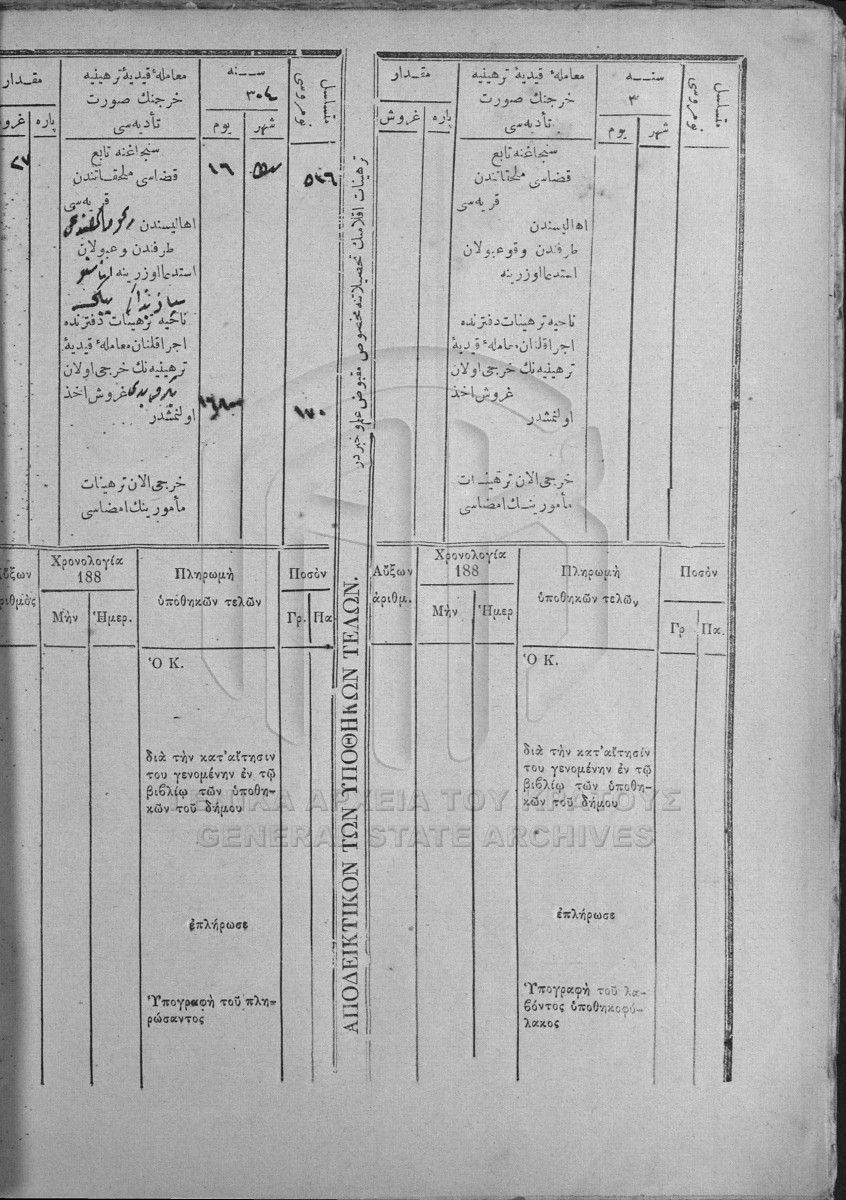 متسلسل نومروسی
سنـــه
٣
شهر
يوم
معاملهٔ قيديهٔ ترهينيه
خرجنك صورت
تأديه‌سی
مقـدار
پاره
غروش
سنجاغنه تابع
قضاسی ملحقاتندن
قريه‌سی
اهاليسندن
طرفندن وقوعبولان
استدعا اوزرينه
ناحيه ترهينات دفترنده
اجرا قلنان معاملهٔ قيديهٔ
ترهينيه‌نك خرجی اولان
غروش اخذ
اولنمشدر
خرجی الان ترهينـات
مأمورينـك امضاسی
ترهينات اقلامنك تحصيلاتنه مخصوص مقبوض علم و خبردر
متسلسل نومروسی
سـنه
٣٠٤
شهر
يوم
معاملهٔ قيديهٔ ترهينيه
خرجنك صورت
تأديه‌سی
مقـدار
پاره
غرو
٥٢٦
١٦
٢٧
سنجاغنه تابع
قضاسی ملحقـاتندن
قريه‌سی
اهاليسندن
طرفندن وقوعبولان
استدعا اوزرينه
ناحيه ترهينات دفترنده
اجرا قلنان معاملهٔ قيديهٔ
ترهينيه‌نك خرجی اولان
غروش اخذ
اولنمشدر
١٧٠
خرجی الان ترهينات
مأمورينك امضاسی
Αὔξων
ἀριθμὸς
Χρονολογία
188
Μὴν
Ἡμερ.
Πληρωμὴ
ὑποθηκῶν τελῶν
Ποσὸν
Γρ.
Πα.
Ὁ Κ.
διὰ τὴν κατ'αἴτησιν
του γενομένην ἐν τῷ
βιβλίῳ τῶν ὑποθη-
κῶν τοῦ δήμου
ἐπλήρωσε
Ὑπογραφὴ τοῦ πλη-
ρώσαντος
ΑΠΟΔΕΙΚΤΙΚΟΝ ΤΩΝ ΥΠΟΘΗΚΩΝ ΤΕΛΩΝ.
Αὔξων
ἀριθμ.
Χρονολογία
188
Μὴν
Ἡμερ
Πληρωμὴ
ὑποθηκῶν τελῶν
Ποσὸν
Γρ
Πα.
Ὁ Κ.
διὰ τὴν κατ'αἴτησίν
του γενομένην ἐν τῷ
βιβλίῳ τῶν ὑποθη-
κῶν τοῦ δήμου
ἐπλήρωσε
Ὑπογραφὴ τοῦ λα-
βόντος ὑποθηκοφύ-
λακος
ΓΕΝΙΚΑ ΑΡΧΕΙΑ ΤΟΥ ΚΡΑΤΟΥΣ
GENERAL STATE ARCHIVES